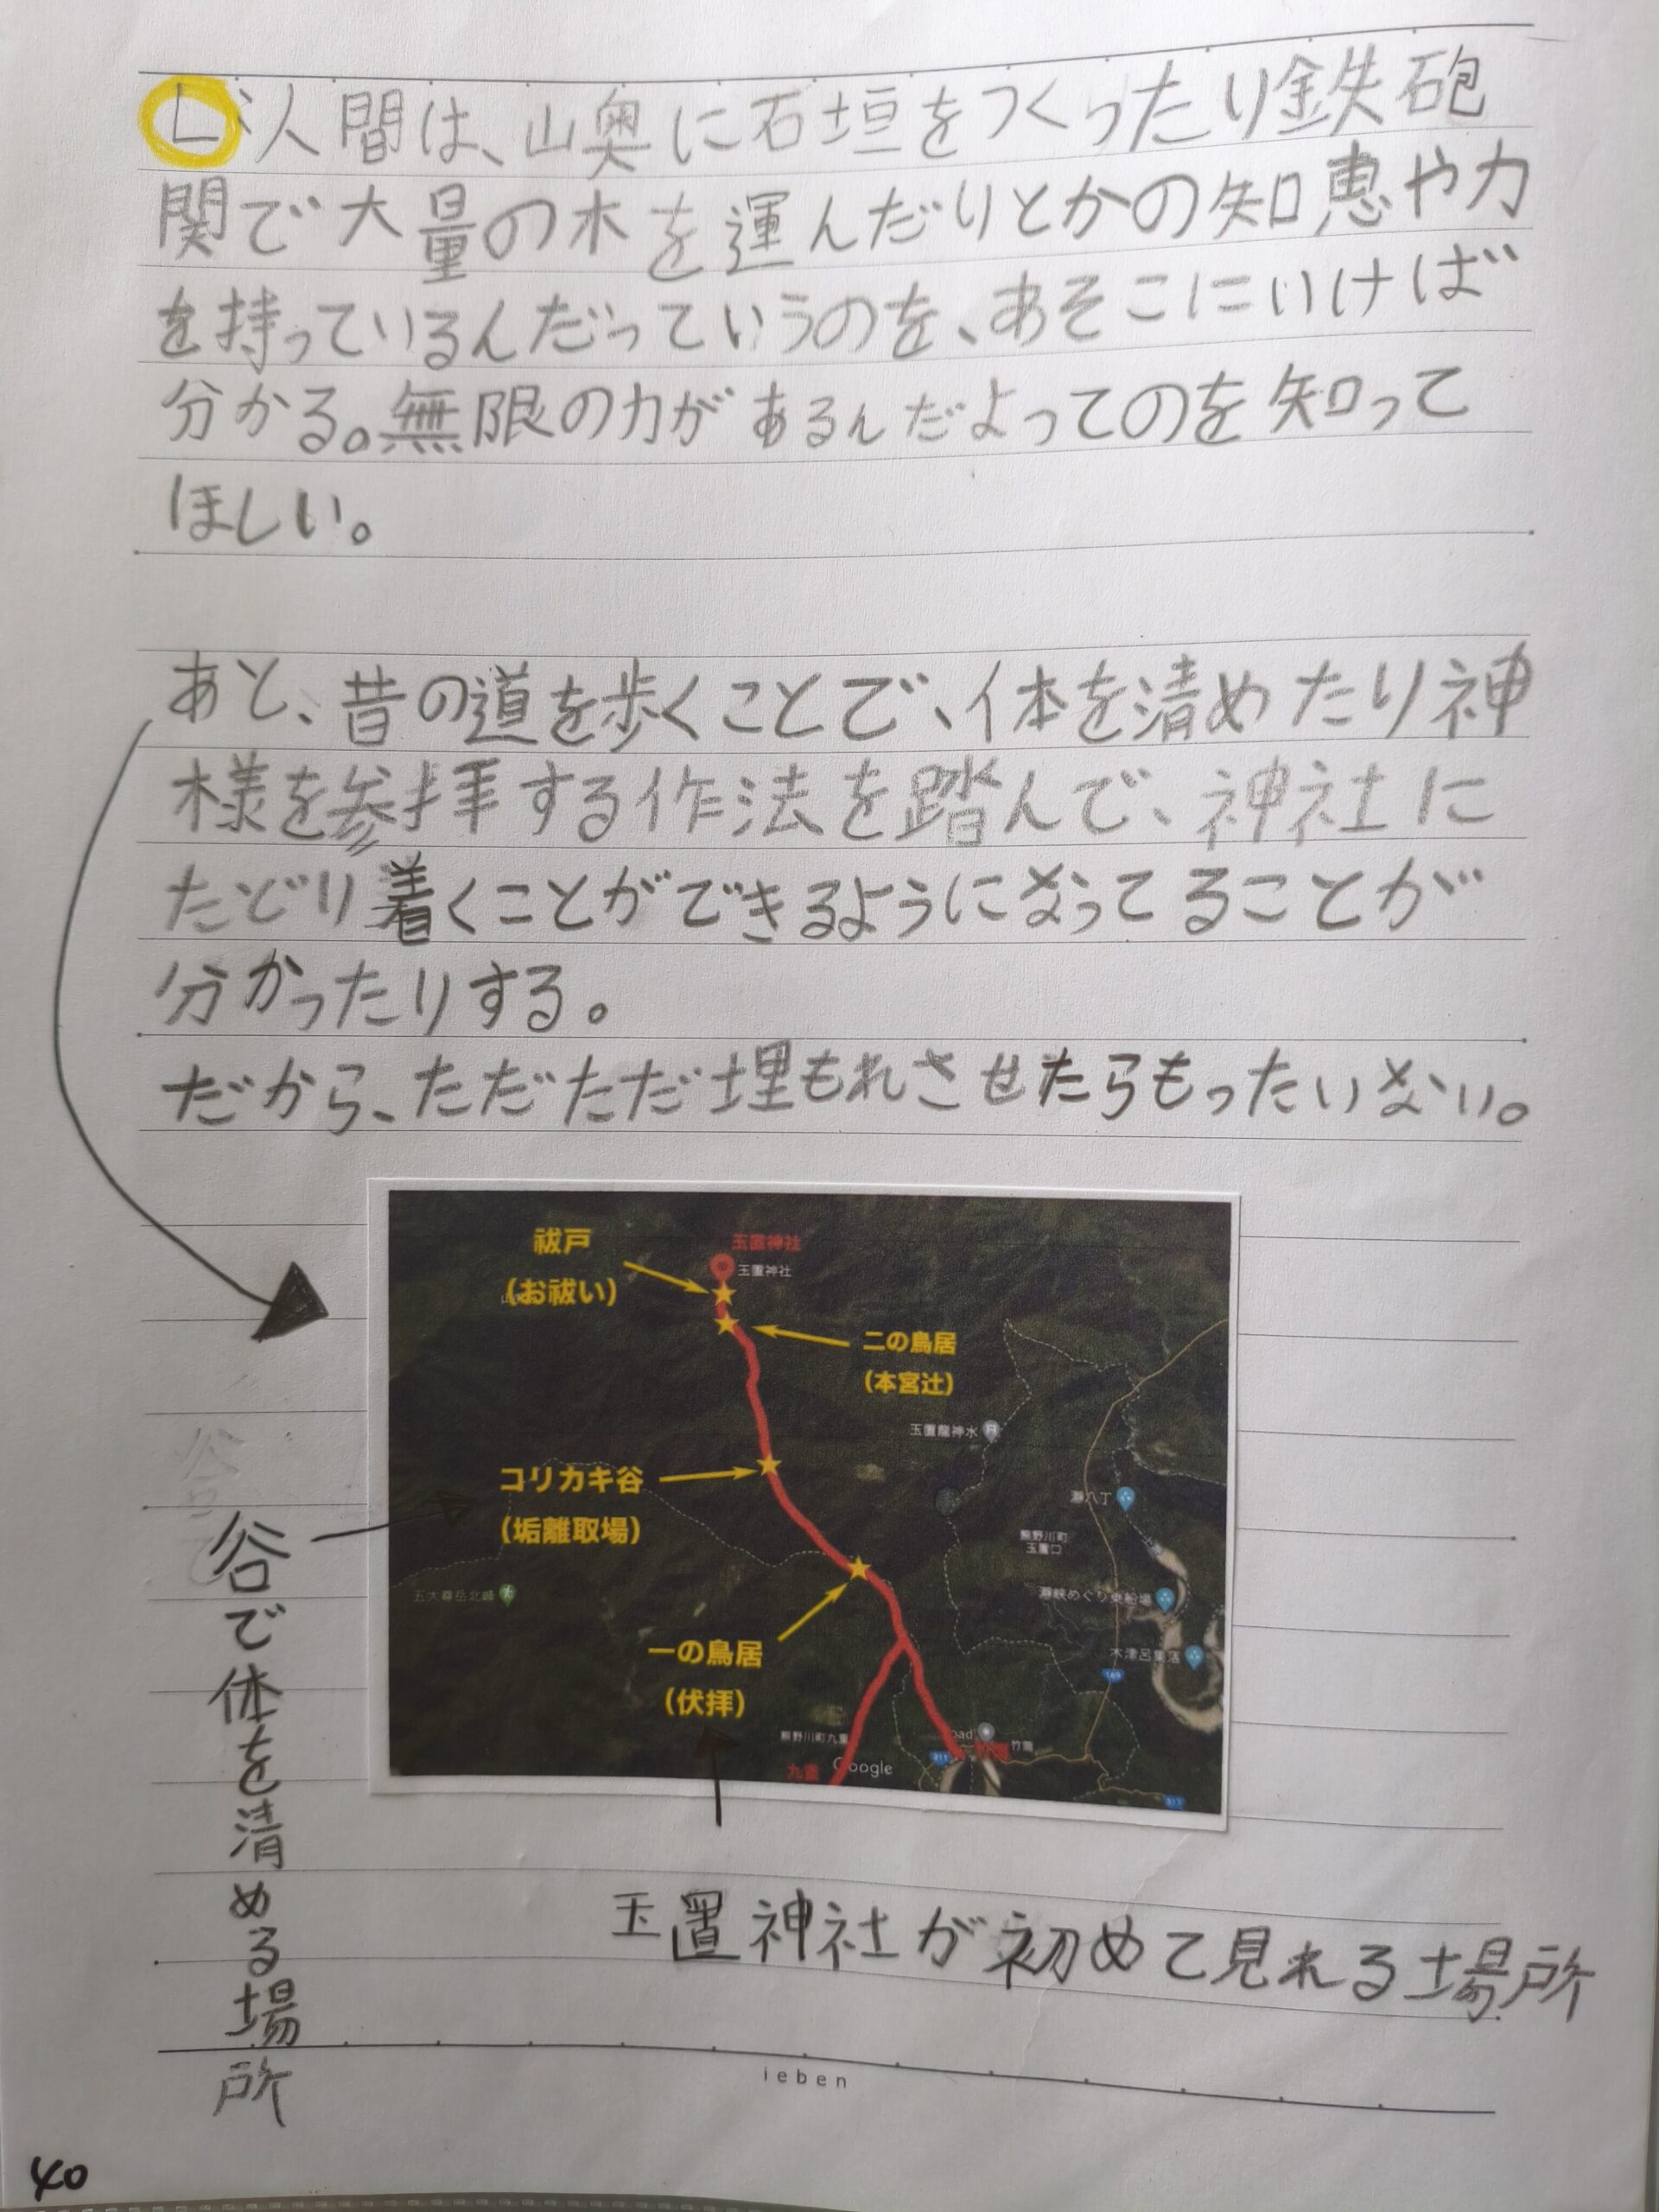 L:人間は、山奥に石垣をつくったり鉄砲
関で大量の木を運んだりとかの知恵や力
を持っているんだっていうのを、あそこにいけば
分かる。無限の力があるんだよってのを知って
ほしい。
あと、昔の道を歩くことで、体を清めたり神
様を参拝する作法を踏んで、神社に
たどり着くことができるようになってることが
分かったりする。
だから、ただただ埋もれさせたらもったいない。
祓戸
(お祓い)
玉置神社
玉置神社
二の鳥居
(本宮辻)
玉置龍神水
コリカキ谷
(垢離取場)
瀞八丁
熊野川町
玉置口
五大尊岳北峰
瀞峡めぐり乗船場
一の鳥居
(伏拝)
木津呂集落
169
熊野川町九重
竹筒
311
九重
Google
311
谷で体を清める場所
玉置神社が初めて見れる場所
ieben
40